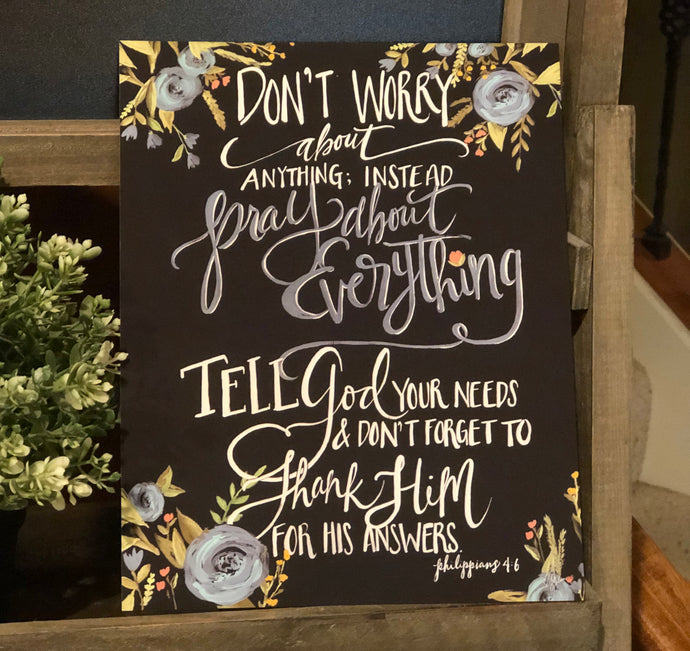 DON'T WORRY
about
ANYTHING; INSTEAD
pray about
Everything
TELL God YOUR NEEDS
& DON'T FORGET TO
Thank HiM
FOR HIS ANSWERS.
philippians 4:6